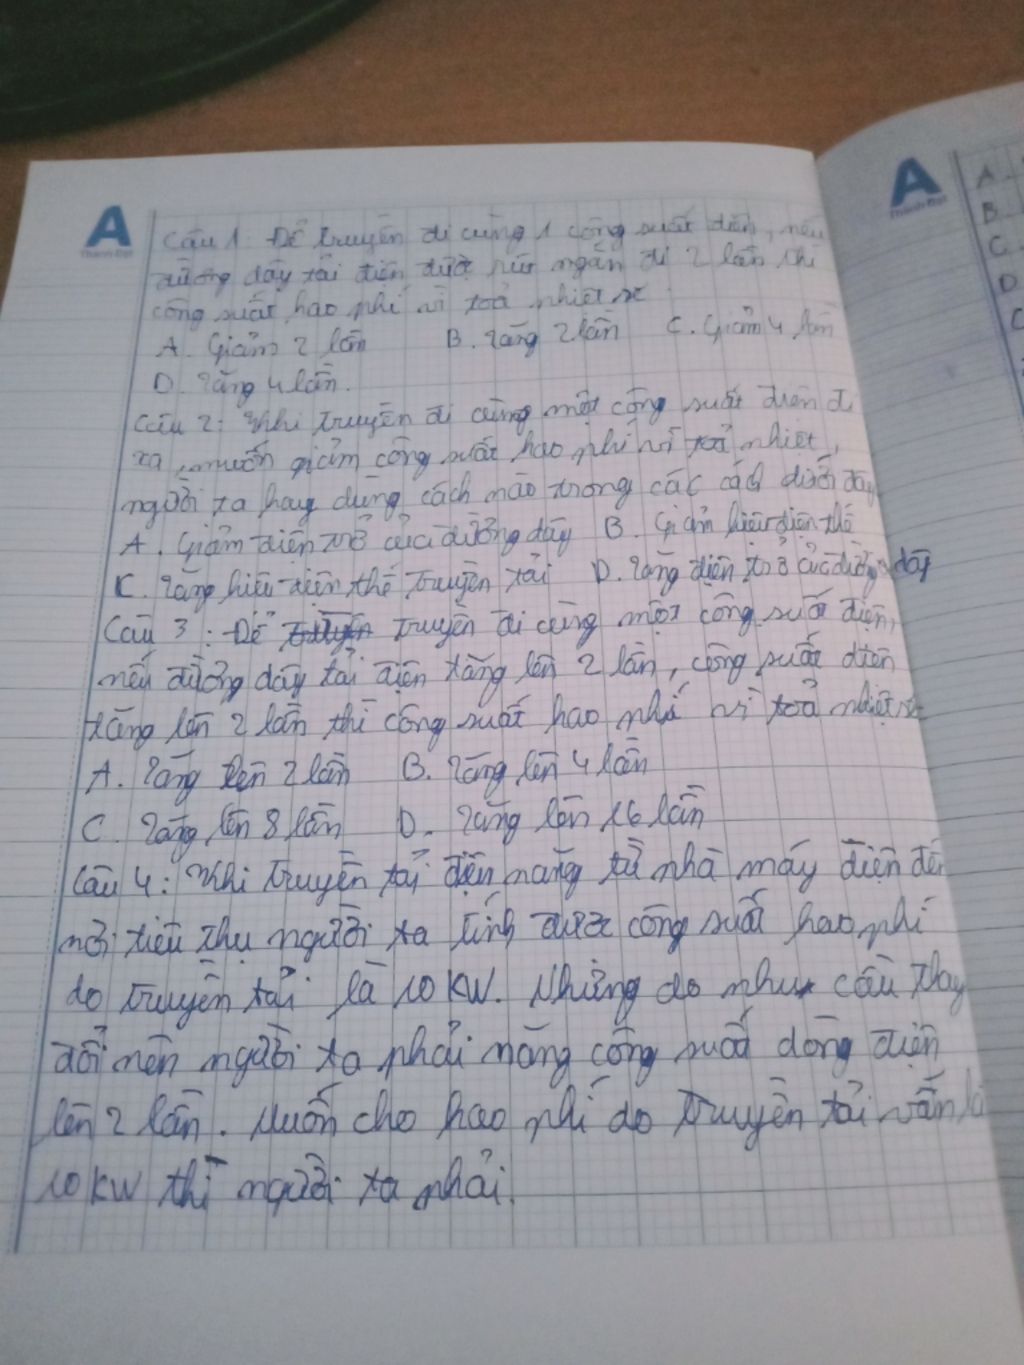 A
Thành Đạt
A
Thành Đạt
Câu 1: Để truyền đi cùng 1 công suất điện, nếu
đường dây tải điện được rút ngắn đi 2 lần thì
công suất hao phí vì toả nhiệt sẽ
A. Giảm 2 lần B. Tăng 2 lần C. Giảm 4 lần
D. Tăng 4 lần.
Câu 2: Khi truyền đi cùng một công suất điện đi
xa, muốn giảm công suất hao phí vì toả nhiệt,
người ta hay dùng cách nào trong các cách dưới đây
A. Giảm điện trở của đường dây B. Giảm hiệu điện thế
C. Tăng hiệu điện thế truyền tải D. Tăng điện trở của đường dây
Câu 3: Để truyền đi cùng một công suất điện,
nếu đường dây tải điện tăng lên 2 lần, công suất điện
tăng lên 2 lần thì công suất hao phí vì toả nhiệt sẽ
A. Tăng lên 2 lần B. Tăng lên 4 lần
C. Tăng lên 8 lần D. Tăng lên 16 lần
Câu 4: Khi truyền tải điện năng từ nhà máy điện đến
nơi tiêu thụ người ta tính được công suất hao phí
do truyền tải là 10 KW. Nhưng do nhu cầu thay
đổi nên người ta phải nâng công suất dòng điện
lên 2 lần. Muốn cho hao phí do truyền tải vẫn là
10 KW thì người ta phải:
A.
B.
C.
D.